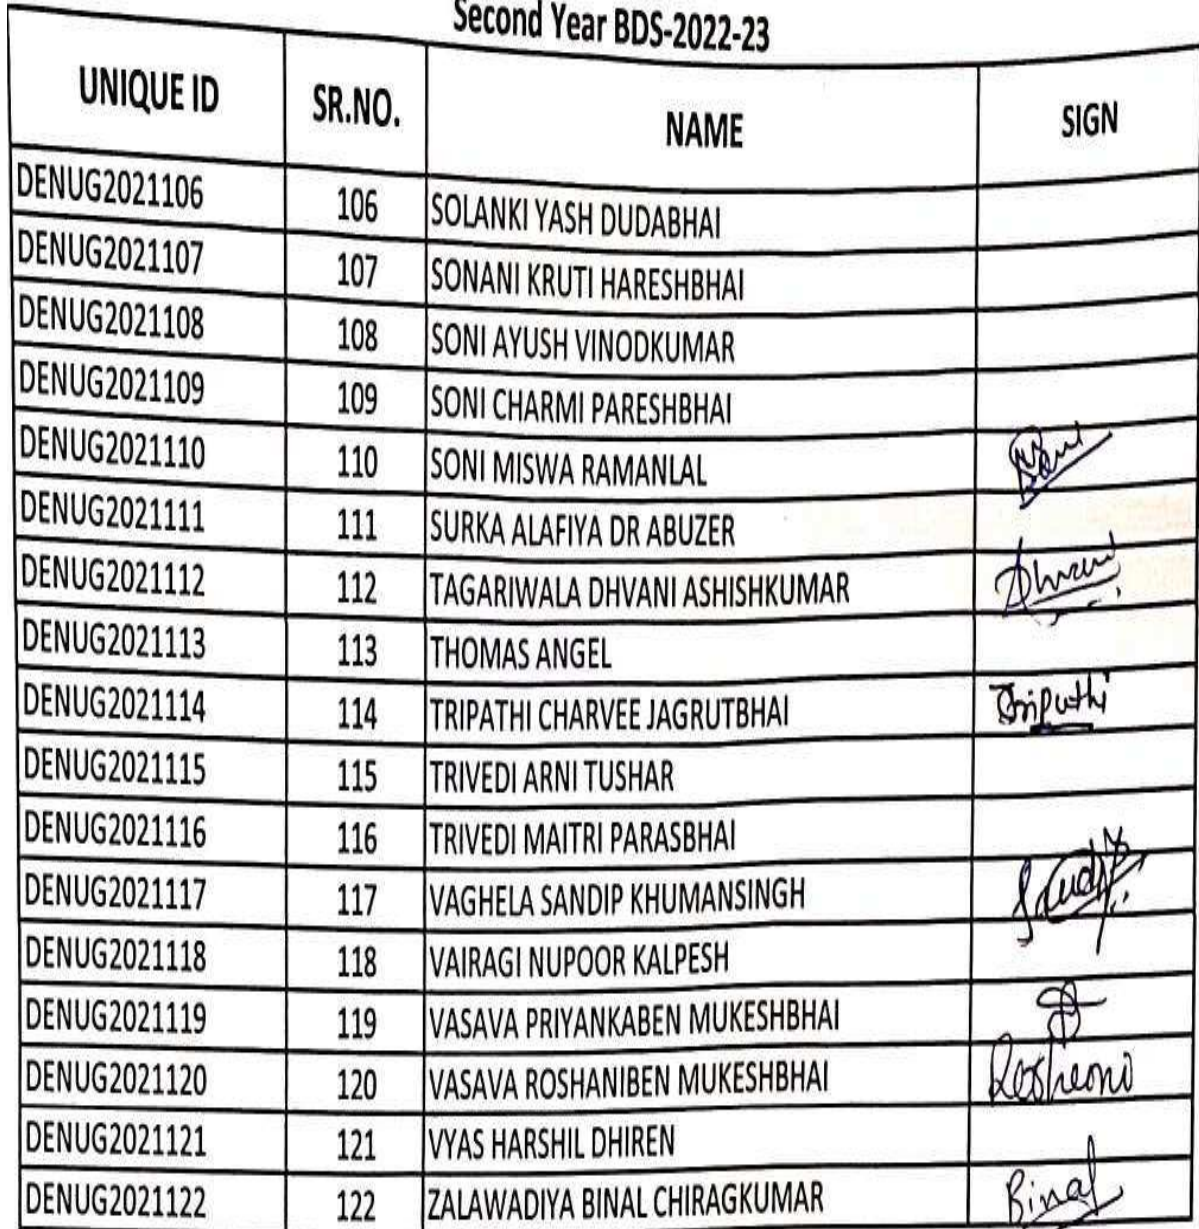 Second Year BDS-2022-23
UNIQUE ID SR.NO. NAME SIGN
DENUG2021106 106 SOLANKI YASH DUDABHAI
DENUG2021107 107 SONANI KRUTI HARESHBHAI
DENUG2021108 108 SONI AYUSH VINODKUMAR
DENUG2021109 109 SONI CHARMI PARESHBHAI
DENUG2021110 110 SONI MISWA RAMANLAL
DENUG2021111 111 SURKA ALAFIYA DR ABUZER
DENUG2021112 112 TAGARIWALA DHVANI ASHISHKUMAR
DENUG2021113 113 THOMAS ANGEL
DENUG2021114 114 TRIPATHI CHARVEE JAGRUTBHAI
DENUG2021115 115 TRIVEDI ARNI TUSHAR
DENUG2021116 116 TRIVEDI MAITRI PARASBHAI
DENUG2021117 117 VAGHELA SANDIP KHUMANSINGH
DENUG2021118 118 VAIRAGI NUPOOR KALPESH
DENUG2021119 119 VASAVA PRIYANKABEN MUKESHBHAI
DENUG2021120 120 VASAVA ROSHANIBEN MUKESHBHAI
DENUG2021121 121 VYAS HARSHIL DHIREN
DENUG2021122 122 ZALAWADIYA BINAL CHIRAGKUMAR Binal